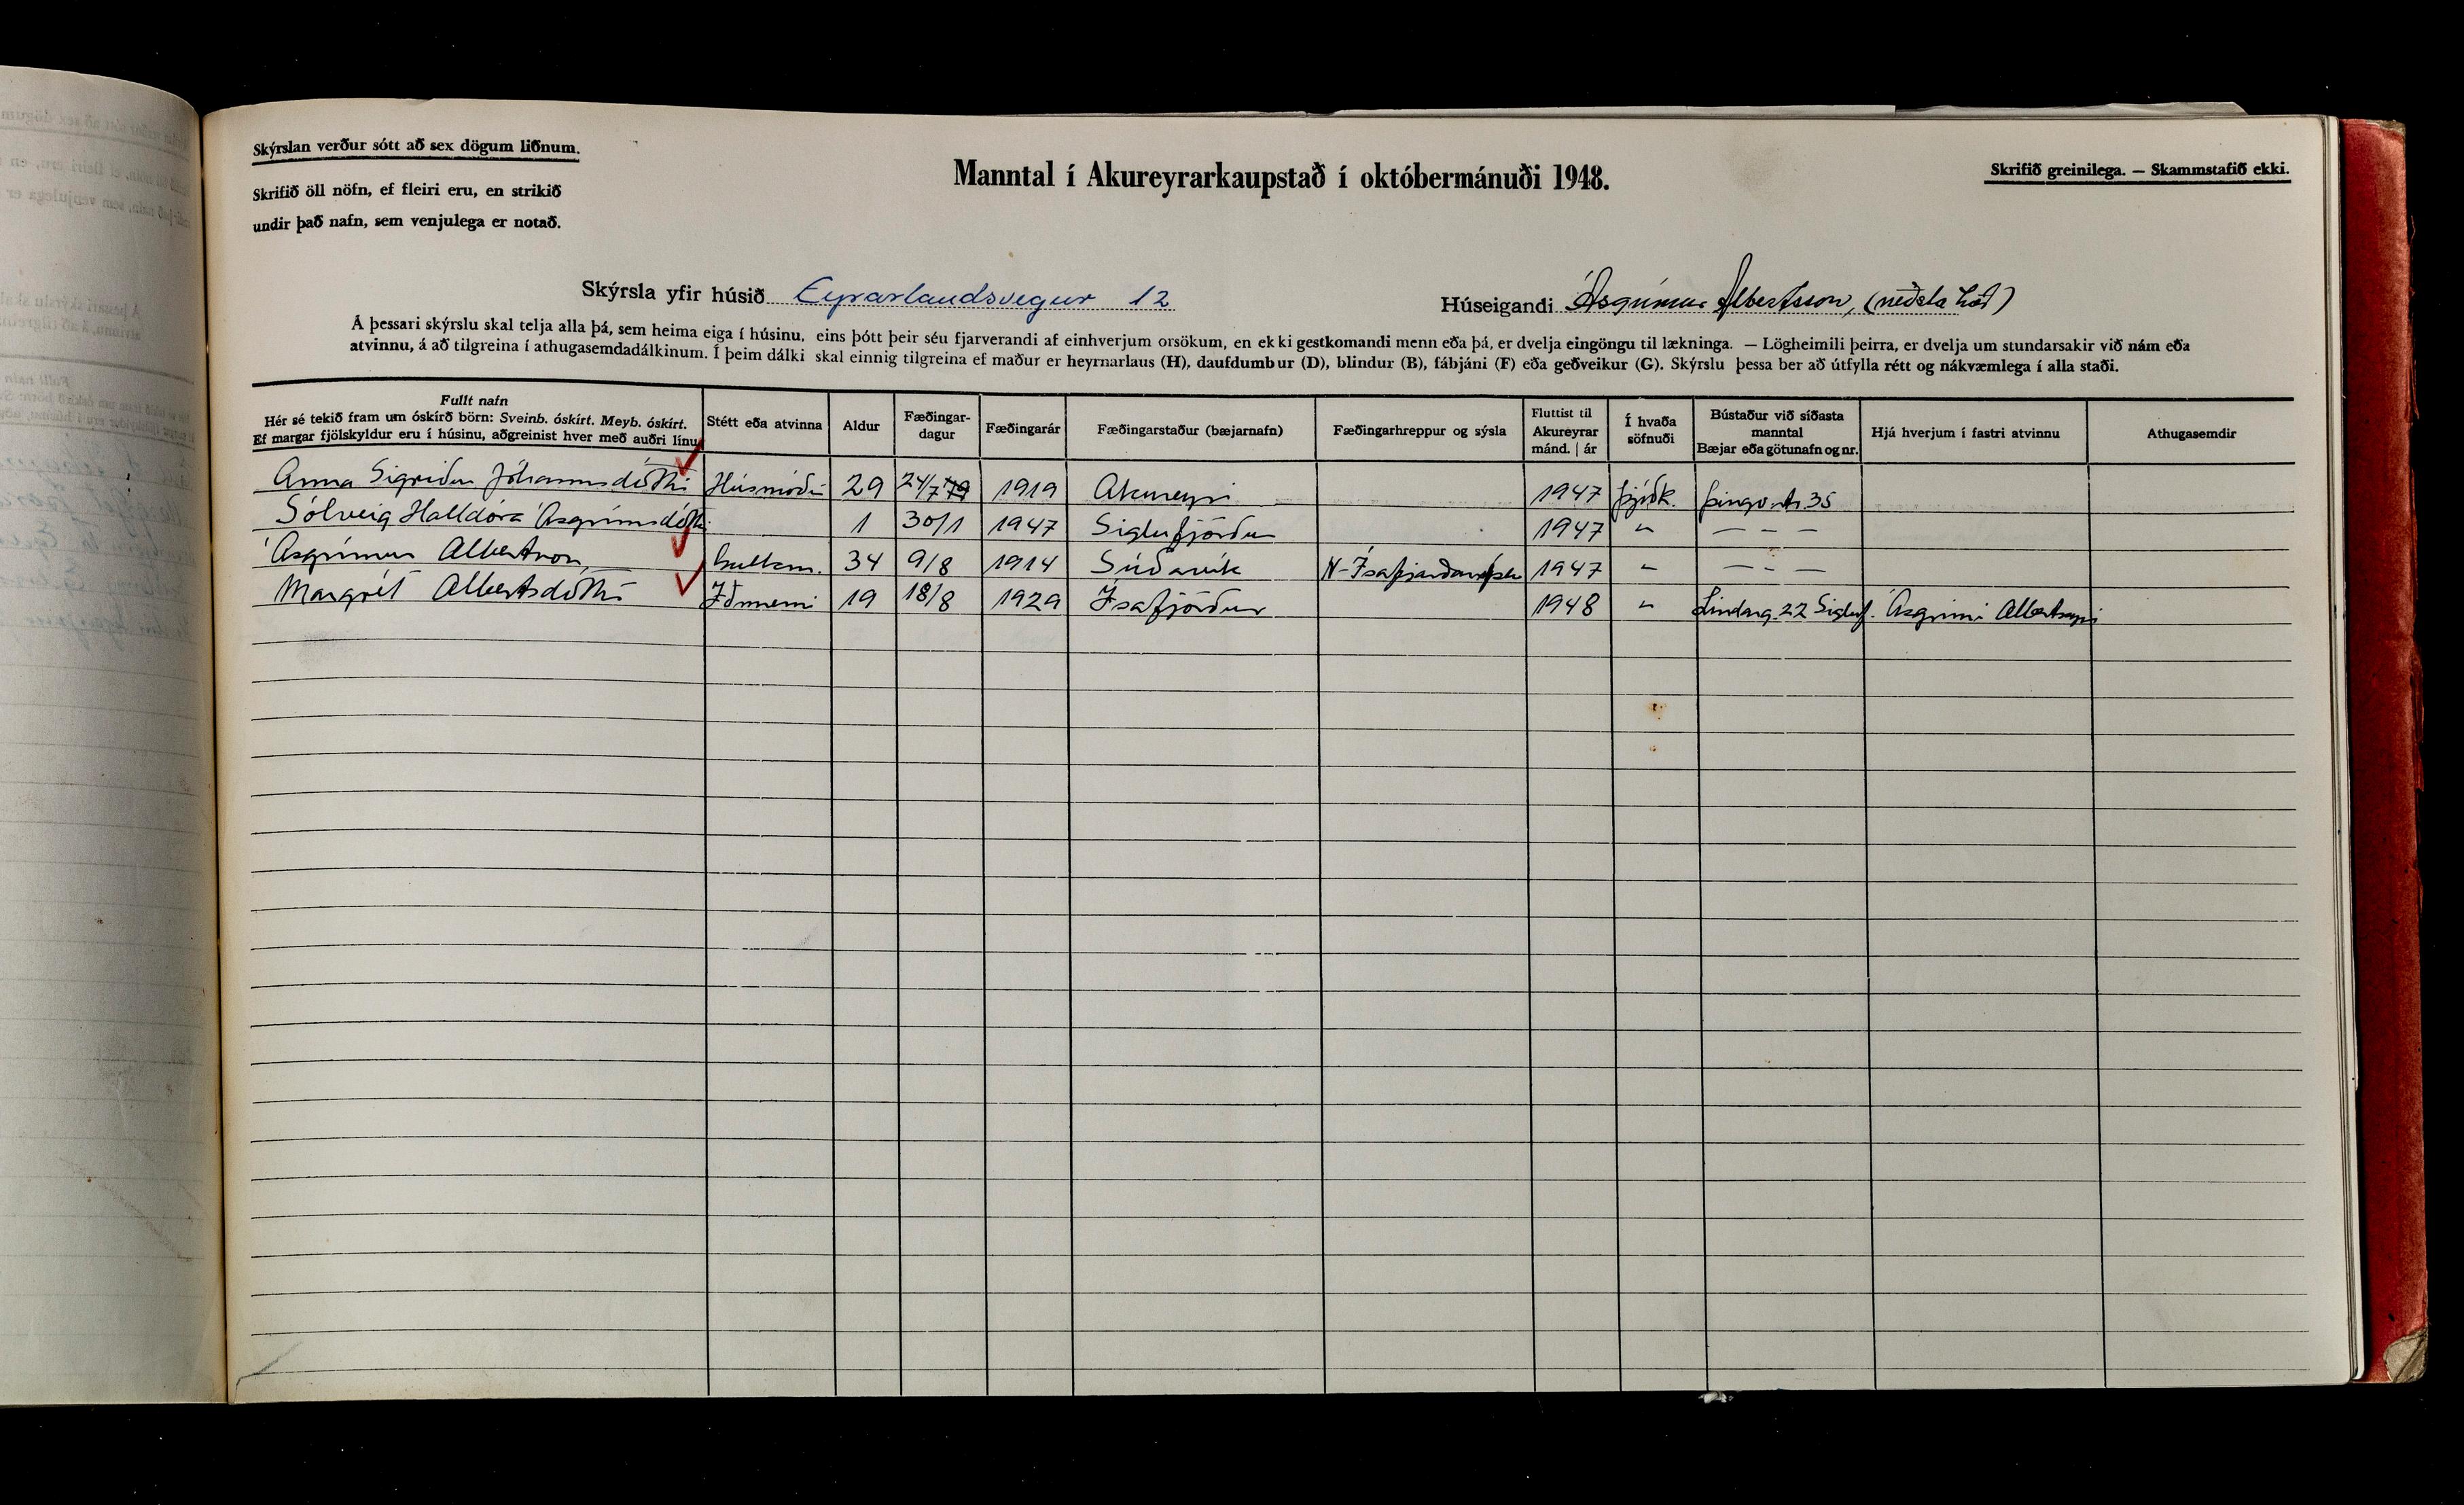 Skýrslan verður sótt að sex dögum liðnum.
Skrifið öll nöfn, ef fleiri eru, en strikið
undir það nafn, sem venjulega er notað.
Manntal í Akureyrarkaupstað í októbermánuði 1948.
Skrifið greinilega. — Skammstafið ekki.
Skýrsla yfir húsið Eyrarlandsvegur 12
Húseigandi Ásgrímur Albertsson, (neðsta hæð)
Á þessari skýrslu skal telja alla þá, sem heima eiga í húsinu, eins þótt þeir séu fjarverandi af einhverjum orsökum, en ekki gestkomandi menn eða þá, er dvelja eingöngu til lækninga. — Lögheimili þeirra, er dvelja um stundarsakir við nám eða
atvinnu, á að tilgreina í athugasemdadálkinum. Í þeim dálki skal einnig tilgreina ef maður er heyrnarlaus (H), daufdumbur (D), blindur (B), fábjáni (F) eða geðveikur (G). Skýrslu þessa ber að útfylla rétt og nákvæmlega í alla staði.
Fullt nafn
Hér sé tekið fram um óskírð börn: Sveinb. óskírt. Meyb. óskírt.
Ef margar fjölskyldur eru í húsinu, aðgreinist hver með auðri línu
Stétt eða atvinna
Aldur
Fæðingar-
dagur
Fæðingarár
Fæðingarstaður (bæjarnafn)
Fæðingarhreppur og sýsla
Fluttist til
Akureyrar
mánd. | ár
Í hvaða
söfnuði
Bústaður við síðasta
manntal
Bæjar eða götunafn og nr.
Hjá hverjum í fastri atvinnu
Athugasemdir
Anna Sigríður Jóhannsdóttir Húsmóðir 29 24/7 1919 Akureyri 1947 Þjóðk. Þingv.str. 35
Sólveig Halldóra Ásgrímsdóttir 1 30/1 1947 Siglufjörður 1947 " — — —
Ásgrímur Albertsson Gullsm. 34 9/8 1914 Súðavík N-Ísafjarðarsýsla 1947 " — - —
Margrét Albertsdóttir Iðnnemi 19 18/8 1929 Ísafjörður 1948 " Lindarg. 22 Sigluf. Ásgrími Albertssyni